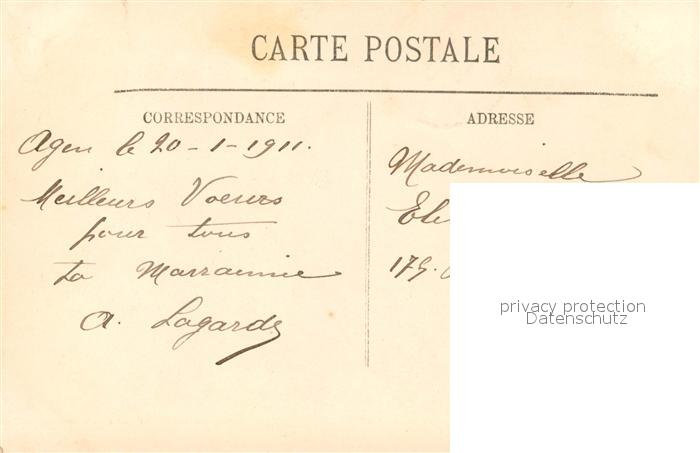 CARTE POSTALE
CORRESPONDANCE
Agen le 20-1-1911.
Meilleurs Voeux
pour tous
ta Marrainne
A. Lagarde
ADRESSE
Mademoiselle
175.
privacy protection
Datenschutz